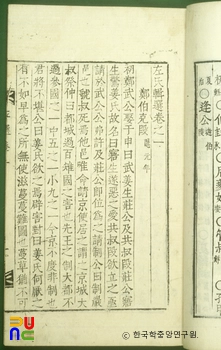 左氏輯選卷之一
鄭伯克段 隱元年
初鄭武公娶于申曰武姜生莊公及共叔段莊公寤
生驚姜氏故名曰寤生遂惡之愛共叔段欲立之亟
請於武公公弗許及莊公卽位為之請制公曰制巖
邑也虢叔死焉他邑唯命請京使居之謂之京城大
叔祭仲曰都城過百雉國之害也先王之制大都不
過參國之一中五之一小九之一今京不度非制也
君將不堪公曰姜氏欲之焉辟害對曰姜氏何厭之
有不如早為之所無使滋蔓蔓難圖也蔓草猶不可
逄公
管叔
PUNC
© 한국학중앙연구원